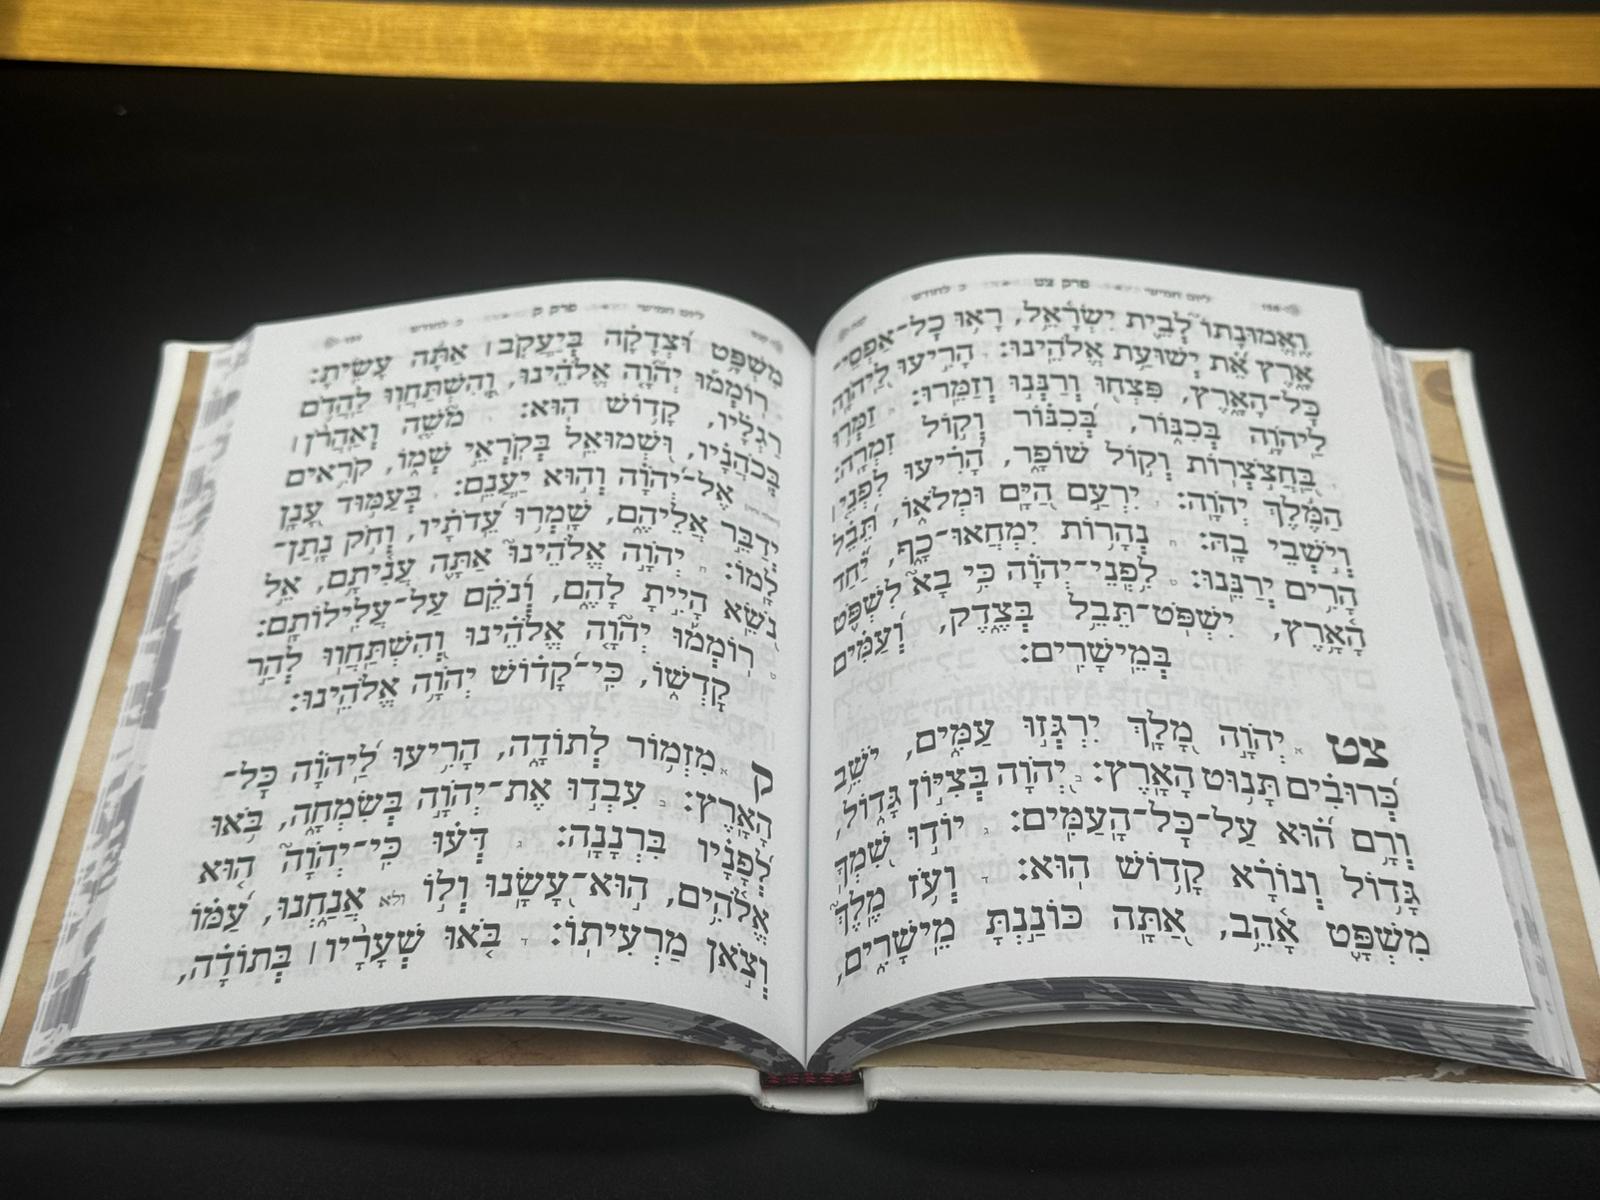 ליום חמישי פרק צט כ לחודש
וֶאֱמוּנָתוֹ לְבֵית יִשְׂרָאֵל, רָאוּ כָל־אַפְסֵי־
אָרֶץ אֵת יְשׁוּעַת אֱלֹהֵינוּ: הָרִיעוּ לַיהוָה
כָּל־הָאָרֶץ, פִּצְחוּ וְרַנְּנוּ וְזַמֵּרוּ: זַמְּרוּ
לַיהוָה בְּכִנּוֹר, בְּכִנּוֹר וְקוֹל זִמְרָה:
בַּחֲצֹצְרוֹת וְקוֹל שׁוֹפָר, הָרִיעוּ לִפְנֵי
הַמֶּלֶךְ יְהוָה: יִרְעַם הַיָּם וּמְלֹאוֹ, תֵּבֵל
וְיֹשְׁבֵי בָהּ: נְהָרוֹת יִמְחֲאוּ־כָף, יַחַד
הָרִים יְרַנֵּנוּ: לִפְנֵי־יְהוָה כִּי בָא לִשְׁפֹּט
הָאָרֶץ, יִשְׁפֹּט־תֵּבֵל בְּצֶדֶק, וְעַמִּים
בְּמֵישָׁרִים:
צט א יְהוָה מָלָךְ יִרְגְּזוּ עַמִּים, יֹשֵׁב
כְּרוּבִים תָּנוּט הָאָרֶץ: ב יְהוָה בְּצִיּוֹן גָּדוֹל,
וְרָם הוּא עַל־כָּל־הָעַמִּים: ג יוֹדוּ שִׁמְךָ
גָּדוֹל וְנוֹרָא קָדוֹשׁ הוּא: ד וְעֹז מֶלֶךְ
מִשְׁפָּט אָהֵב, אַתָּה כּוֹנַנְתָּ מֵישָׁרִים,
ליום חמישי פרק ק כ לחודש
מִשְׁפָּט וּצְדָקָה בְּיַעֲקֹב׀ אַתָּה עָשִׂיתָ:
רוֹמְמוּ יְהוָה אֱלֹהֵינוּ, וְהִשְׁתַּחֲווּ לַהֲדֹם
רַגְלָיו, קָדוֹשׁ הוּא: מֹשֶׁה וְאַהֲרֹן׀
בְּכֹהֲנָיו, וּשְׁמוּאֵל בְּקֹרְאֵי שְׁמוֹ, קֹרִאים
אֶל־יְהוָה וְהוּא יַעֲנֵם: בְּעַמּוּד עָנָן
יְדַבֵּר אֲלֵיהֶם, שָׁמְרוּ עֵדֹתָיו, וְחֹק נָתַן־
לָמוֹ: ח יְהוָה אֱלֹהֵינוּ אַתָּה עֲנִיתָם, אֵל
נֹשֵׂא הָיִיתָ לָהֶם, וְנֹקֵם עַל־עֲלִילוֹתָם:
ט רוֹמְמוּ יְהוָה אֱלֹהֵינוּ וְהִשְׁתַּחֲווּ לְהַר
קָדְשׁוֹ, כִּי־קָדוֹשׁ יְהוָה אֱלֹהֵינוּ:
ק א מִזְמוֹר לְתוֹדָה, הָרִיעוּ לַיהוָה כָּל־
הָאָרֶץ: ב עִבְדוּ אֶת־יְהוָה בְּשִׂמְחָה, בֹּאוּ
לְפָנָיו בִּרְנָנָה: ג דְּעוּ כִּי־יְהוָה הוּא
אֱלֹהִים, הוּא־עָשָׂנוּ וְלוֹ ולא אֲנַחְנוּ, עַמּוֹ
וְצֹאן מַרְעִיתוֹ: ד בֹּאוּ שְׁעָרָיו׀ בְּתוֹדָה,